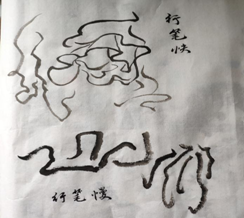 行笔快
行笔慢